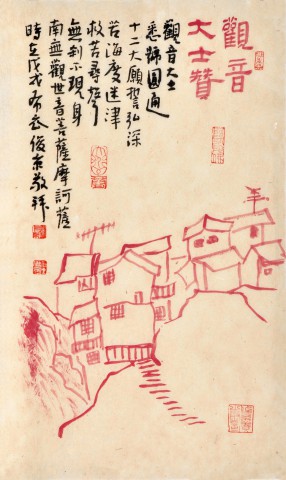 觀音
大士贊
觀音大士
悉號圓通
十二大願誓弘深
苦海度迷津
救苦尋聲
無刹不現身
南無觀世音菩薩摩訶薩
時在戊戌布衣俊京敬拜